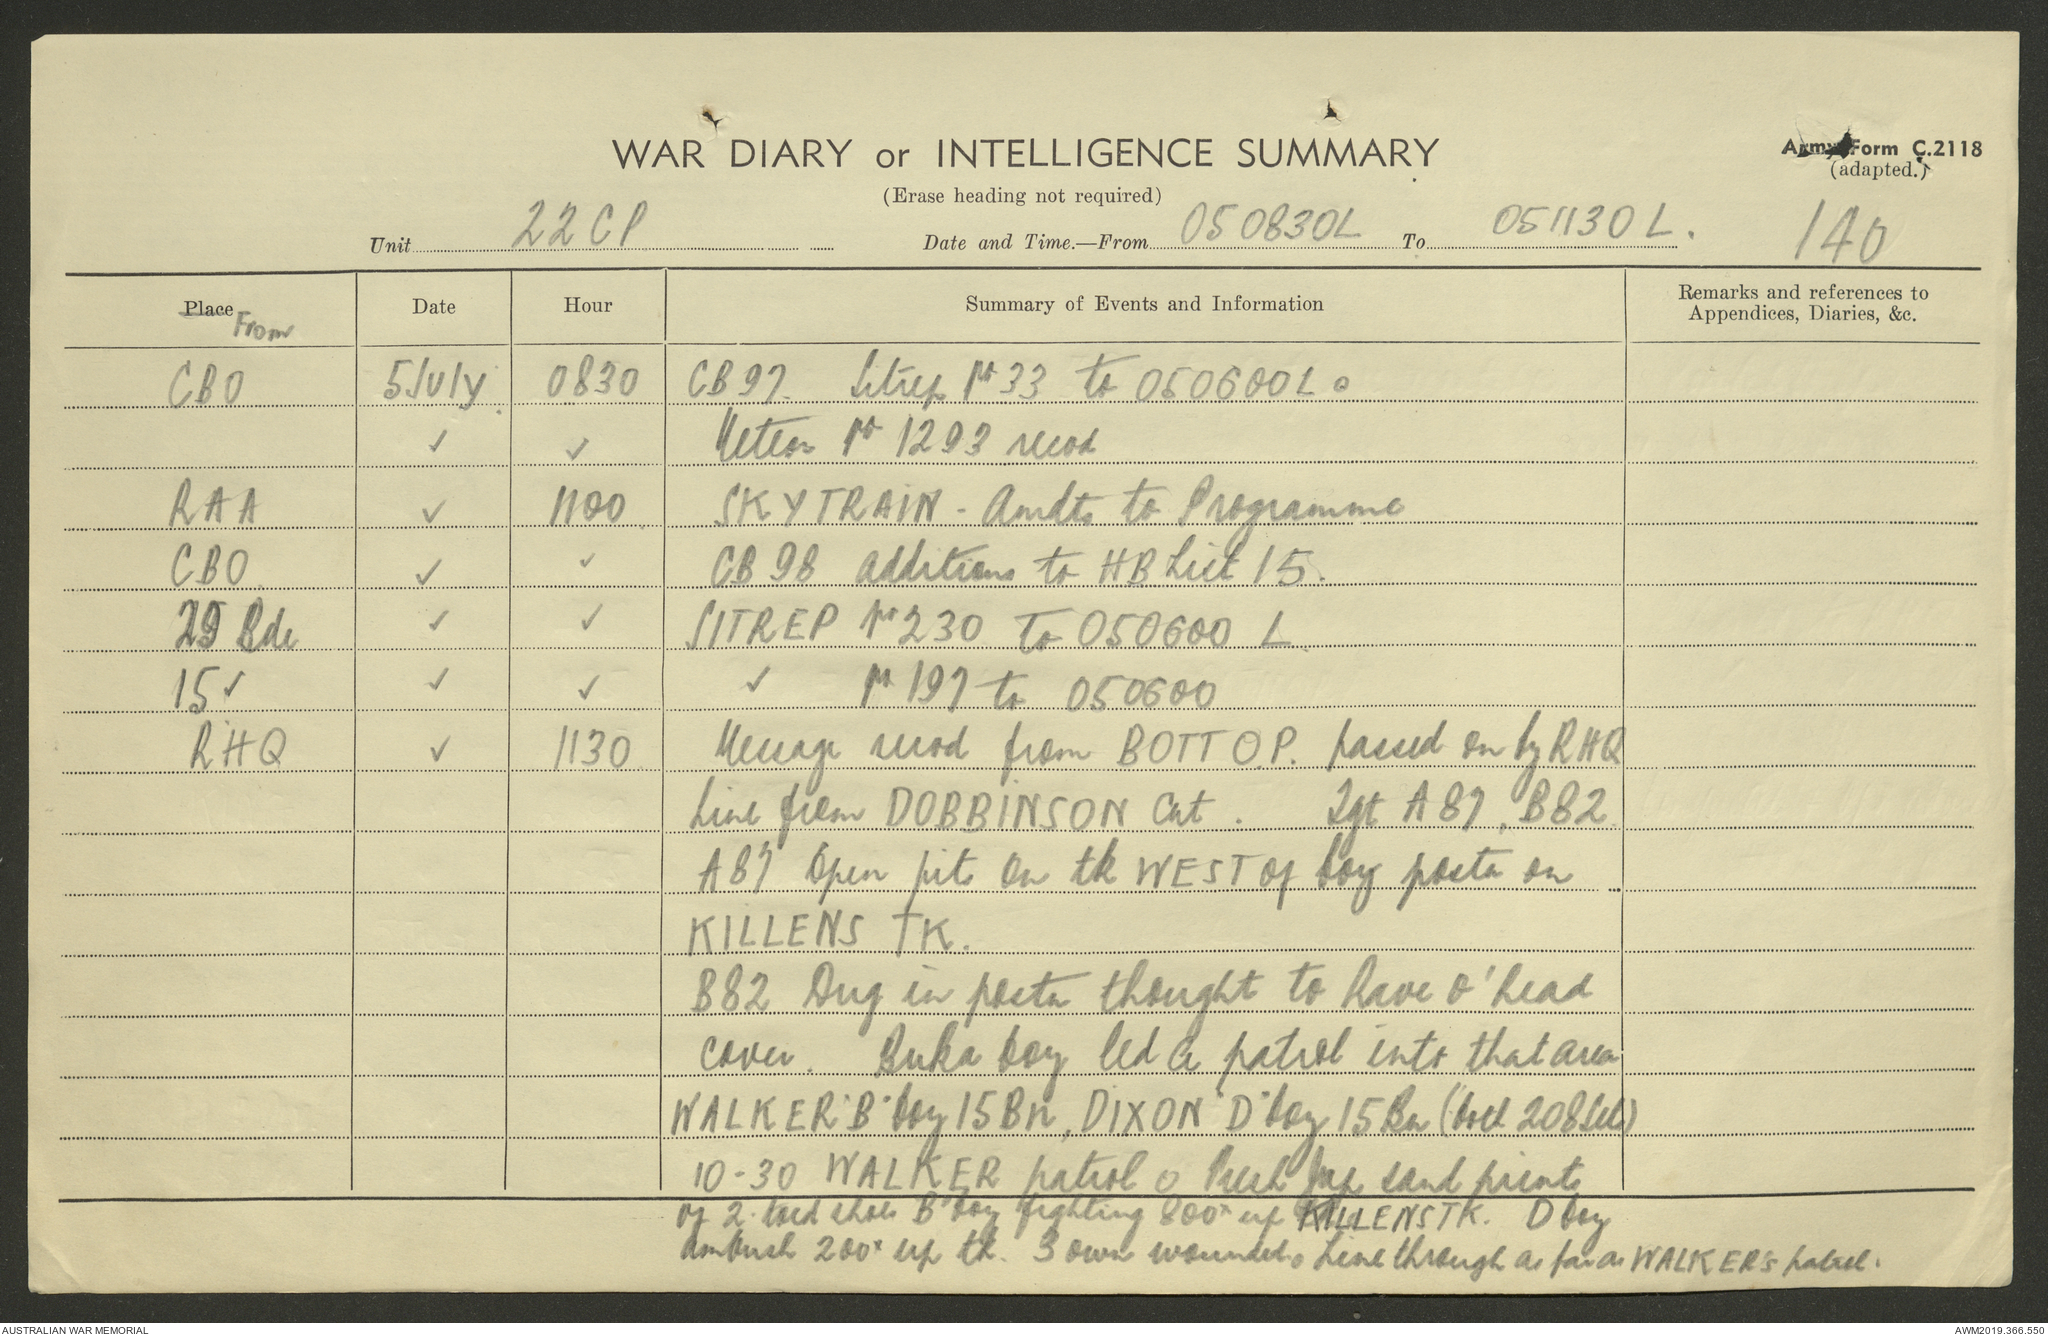 WAR DIARY or INTELLIGENCE SUMMARY
(Erase heading not required)
Army Form C.2118
(adapted.)
Unit 22 CP Date and Time.—From 050830L To 051130L. 140
Place From Date Hour Summary of Events and Information Remarks and references to Appendices, Diaries, &c.
CBO 5 July 0830 CB97. Sitrep No 33 to 050600L.
✓ ✓ Meteor No 1293 recd
RAA ✓ 1100 SKYTRAIN - Amdts to Programme
CBO ✓ ✓ CB 98 additions to HB List 15.
29 Bde ✓ ✓ SITREP No 230 to 050600 L
15 ✓ ✓ ✓ ✓ No 197 to 050600
RHQ ✓ 1130 Message recd from BOTT O.P. passed on by RHQ
Line from DOBBINSON Cut. Tgt A87, B82
A87 Open pits on tk WEST of Coy posts on
KILLENS TK.
B82 Dug in posts thought to have o'head
cover. Buka boy led a patrol into that area
WALKER "B" Coy 15 Bn, DIXON "D" Coy 15 Bn ( 208 )
10-30 WALKER patrol o Fresh Jap sand prints
of 2 toed shoes B Coy fighting 800x up KILLENS TK. D Coy
ambush 200x up tk. 3 own wounded. Line through as far as WALKER'S patrol.
AUSTRALIAN WAR MEMORIAL
AWM2019.366.550